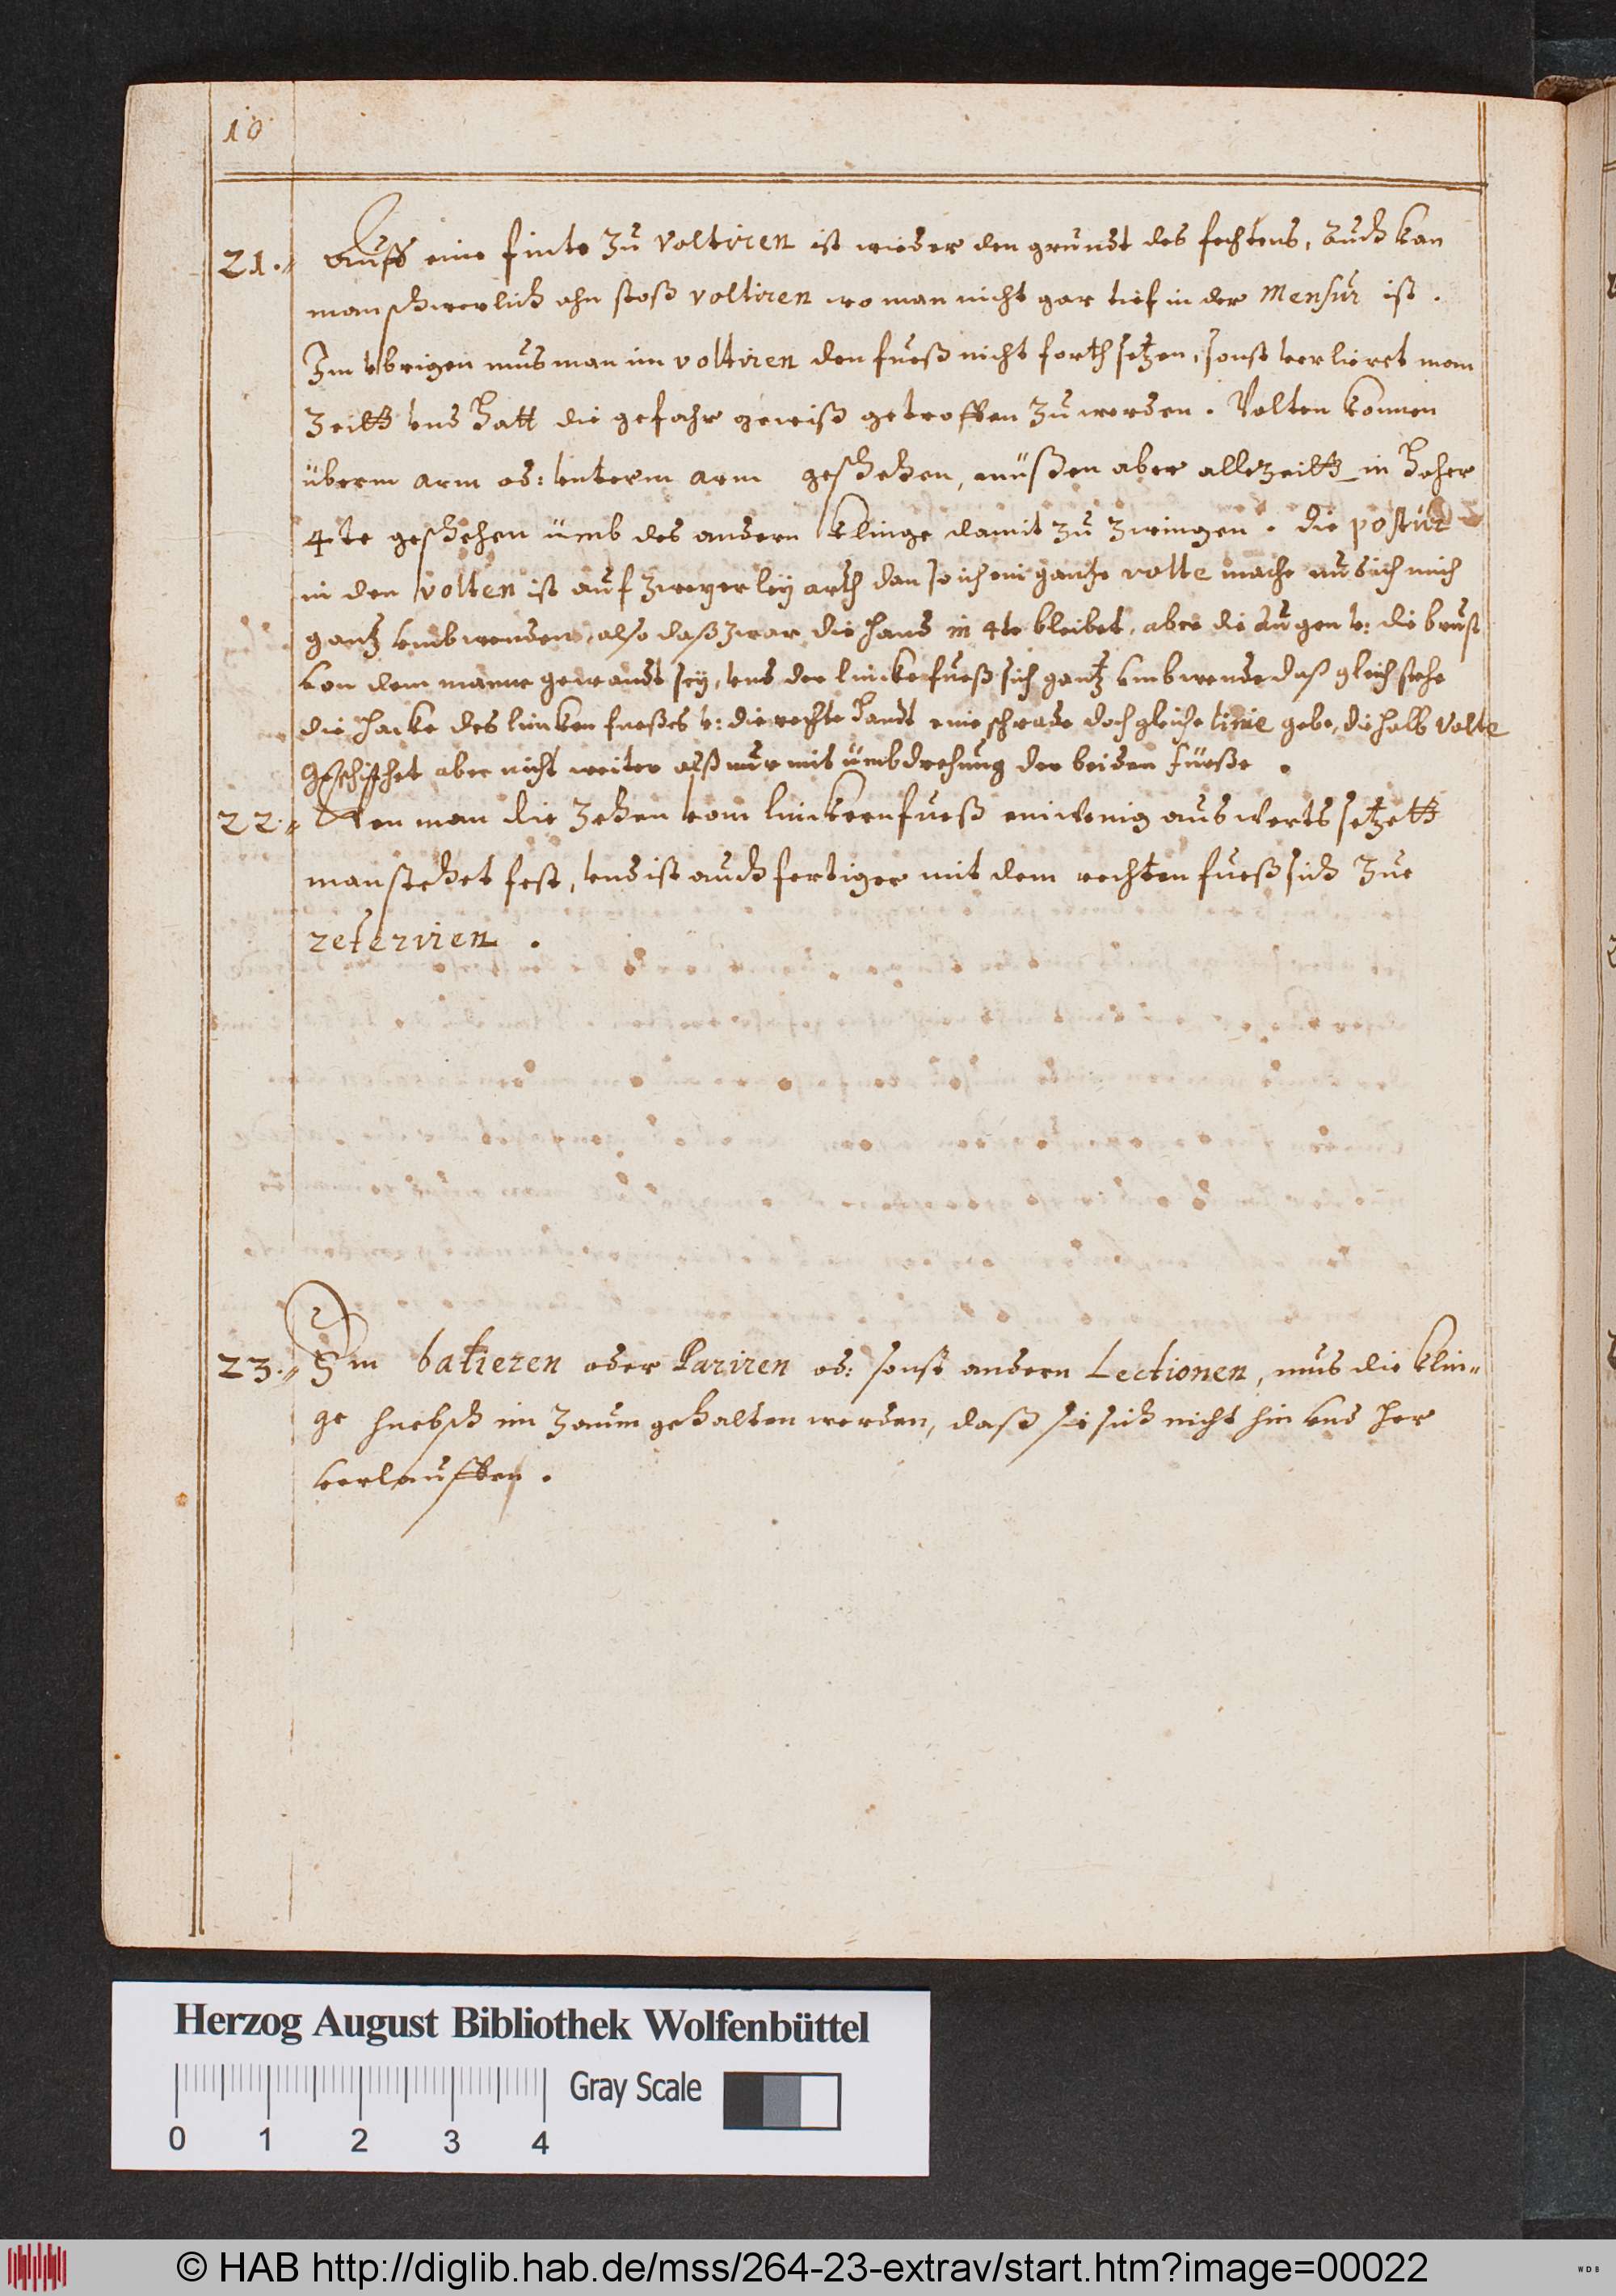 10
21. Auff eine finte zŭ voltiren ist wieder den grundt des fechtens, Auch kan
man schwerlich ohn stoß voltiren wo man nicht gar tief in der Mensur ist.
Im vbrigen mus man im voltiren den fueß nicht forth setzen, sonst verlieret man
Zeitt vnd hatt die gefahr gewiß getroffen zŭ werden. Volten können
überm arm od: vnterm arm geschehen, müßen aber allezeitt in hoher
4te geschehen ümb des andern klinge damit zŭ zwingen. die postur
in den volten ist auf zweyerleÿ arth dan so ich ein gantze volte mache mus ich mich
gantz vmbwenden, also daß zwar die hand in 4te bleibet, aber die Augen v: die brust
von dem manne gewandt seÿ, vnd der lincke fueß sich gantz vmbwende daß gleich stehe
die hacke des lincken fueßes v: die rechte handt eine schrade doch gleiche linie gebe, die halb volte
Geschiehet aber nicht weiter alß nur mit ümbdrehung der beiden füeße.
22. Wen man die zehen vom linckern fueß ein wenig auswerts setzett
man stehet fest, vnd ist auch fertiger mit dem rechten fueß sich zue
reterrien.
23. Im batieren oder Pariren od: sonst andern Lectionen, mus die klin-
ge huebsch im zaum gehalten werden, daß sie sich nicht hin vnd her
verlauffen.
Herzog August Bibliothek Wolfenbüttel
Gray Scale
0 1 2 3 4
© HAB http://diglib.hab.de/mss/264-23-extrav/start.htm?image=00022
WDB